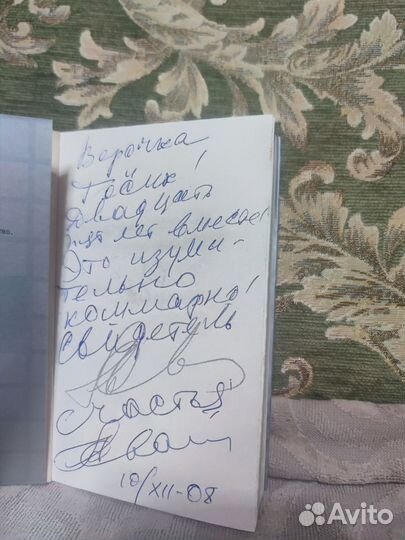 ство.
Верочка
Гоѝк!
Двадцать
пят лет вместе!
Это изуми-
тельно
коммарно!
Свидетель
Счастья
10/XII-08
Avito